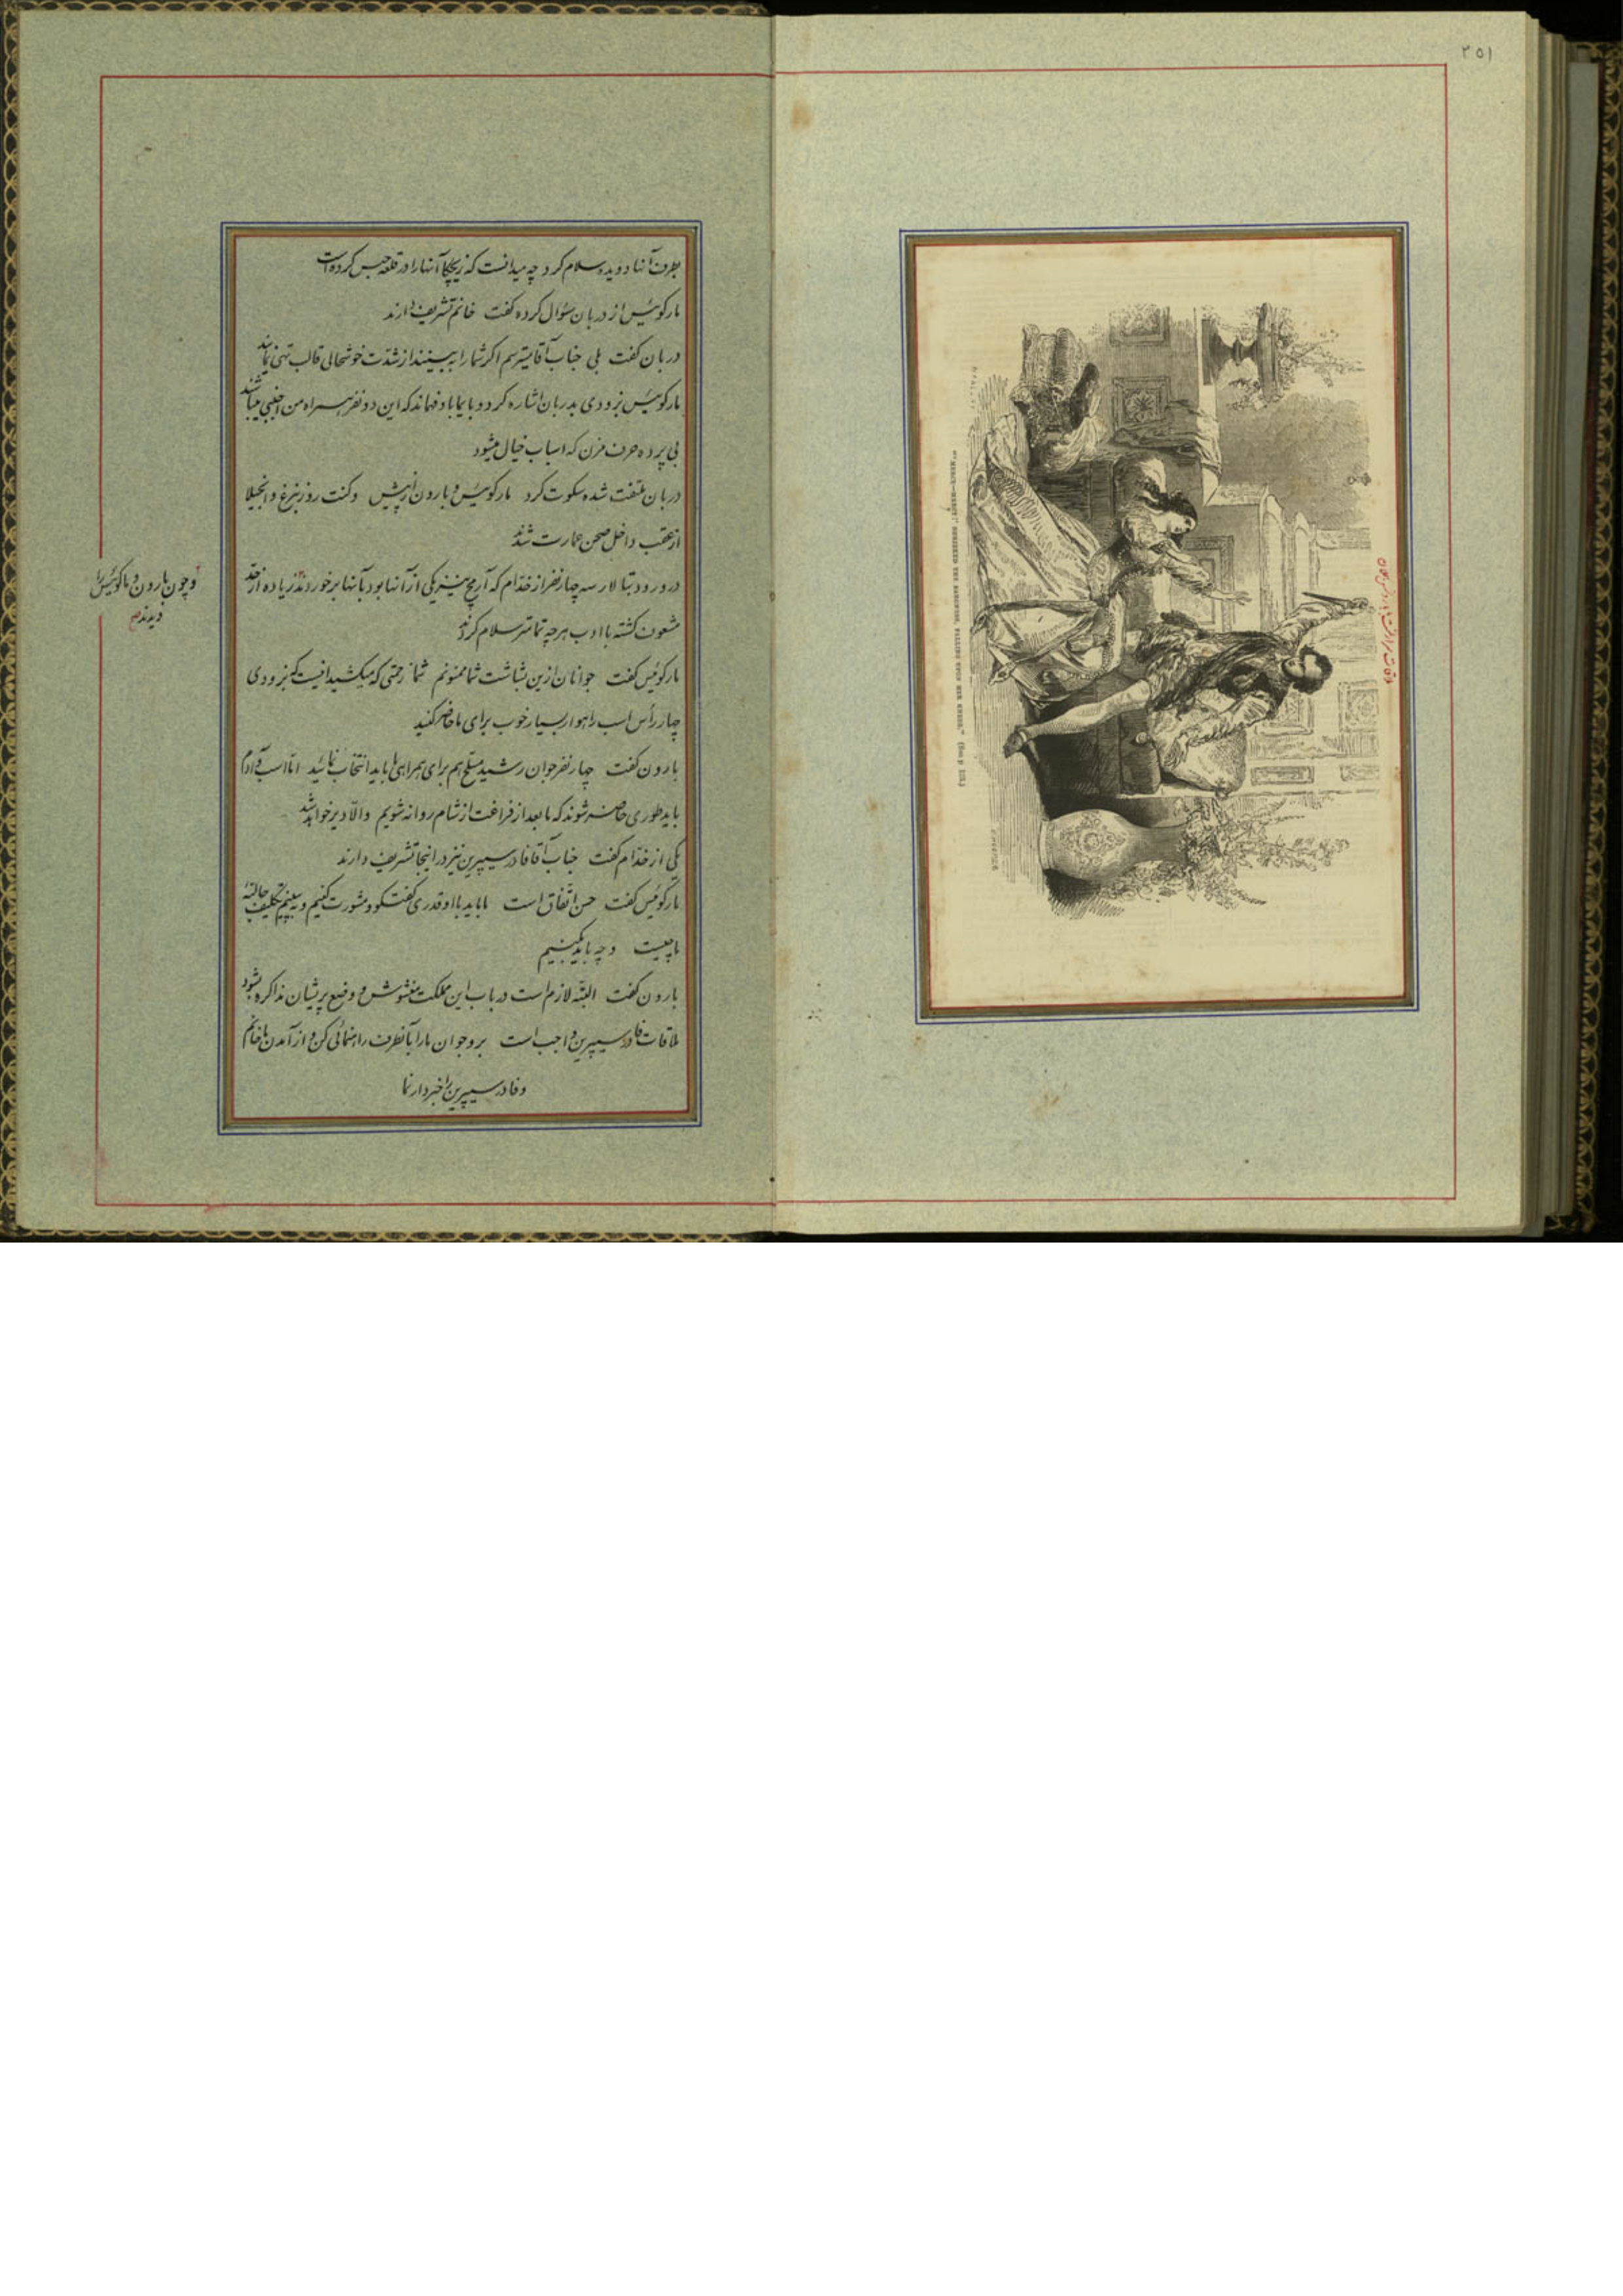 ۲۵۱
"MERCY—MERCY!" SHRIEKED THE BARONESS, FALLING UPON HER KNEES.
بطرف آنها دویده سلام کرد چه میدانست که زیچکا آنها را در قلعه حبس کرده است
مارکوئیس از دربان سؤال کرده گفت خانم تشریف دارند
دربان گفت بلی جناب آقا میترسم اگر شما را ببینند از شدت خوشحالی قالب تهی نمایند
مارکوئیس بزودی بدربان اشاره کرد و بایما باو فهماند که این دو نفر همراه من اجنبی میباشند
بی پرده حرف مزن که اسباب خیال میشود
دربان ملتفت شده سکوت کرد مارکوئیس و بارون از پیش و کنت روزنبرغ و انجیلا
از عقب داخل صحن عمارت شدند
در ورود بتالار سه چهار نفر از خدام که آریخ نیز یکی از آنها بود بآنها برخوردند زیاده از حد
و چون بارون و مارکوئیس را
دیدند صح
مشعوف گشته با ادب هرچه تمامتر سلام کردند
مارکوئیس گفت جوانان ازین بشاشت شما ممنونم شما زحمتی که میکشید اینست که بزودی
چهار رأس اسب راهوار بسیار خوب برای ما حاضر کنید
بارون گفت چهار نفر جوان رشید مسلح هم برای همراهی ما باید انتخاب نمائید اما اسب و آدم
باید طوری حاضر شوند که ما بعد از فراغت از شام روانه شویم والا دیر خواهد شد
یکی از خدام گفت جناب آقا فادر سیپرین نیز در اینجا تشریف دارند
مارکوئیس گفت حسن اتفاق است ما باید با او قدری گفتگو و مشورت کنیم و ببینیم تکلیف حالیه
ما چیست و چه باید بکنیم
بارون گفت البته لازم است در باب این مملکت مغشوش و وضع پریشان مذاکره بشود
ملاقات فادر سیپرین واجب است برو جوان ما را بآنطرف راهنمائی کن و از آمدن ما خانم
و فادر سیپرین را خبردار نما